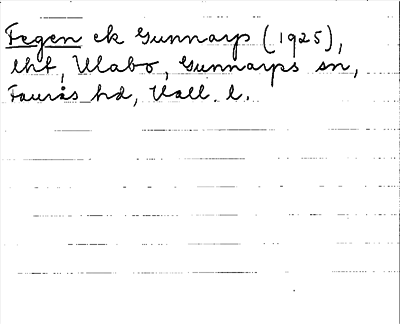 Fegen ek Gunnarp (1925),
lht, Ulabo, Gunnarps sn,
Faurås hd, Hall. l.